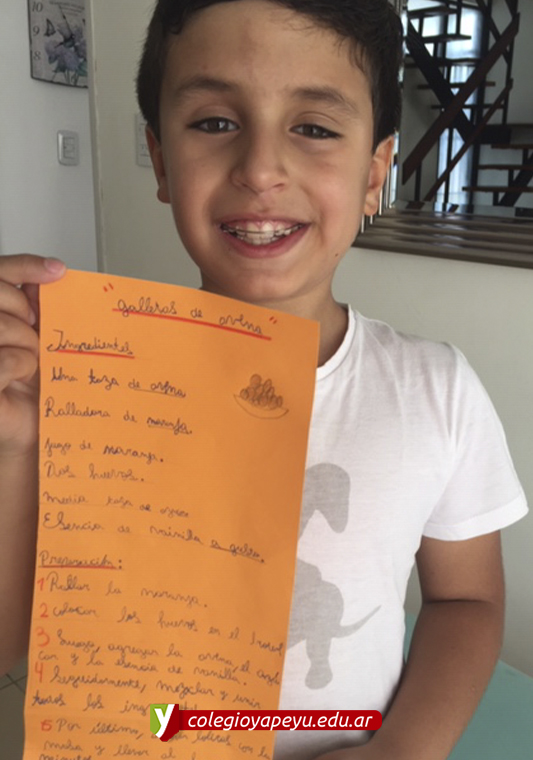 "galletas de avena"
Ingredientes
Una taza de avena
Ralladura de naranja
jugo de naranja.
Dos huevos.
media taza de azúcar
Esencia de vainilla a gusto.
Preparación:
1 Rallar la naranja.
2 colocar los huevos en el
3 Luego, agregar la avena, el azú
car y la esencia de vainilla.
4 Seguidamente, mezclar y unir
todos los
5 Por último, con la
y llevar al
minutos
10
9
8
y colegioyapeyu.edu.ar